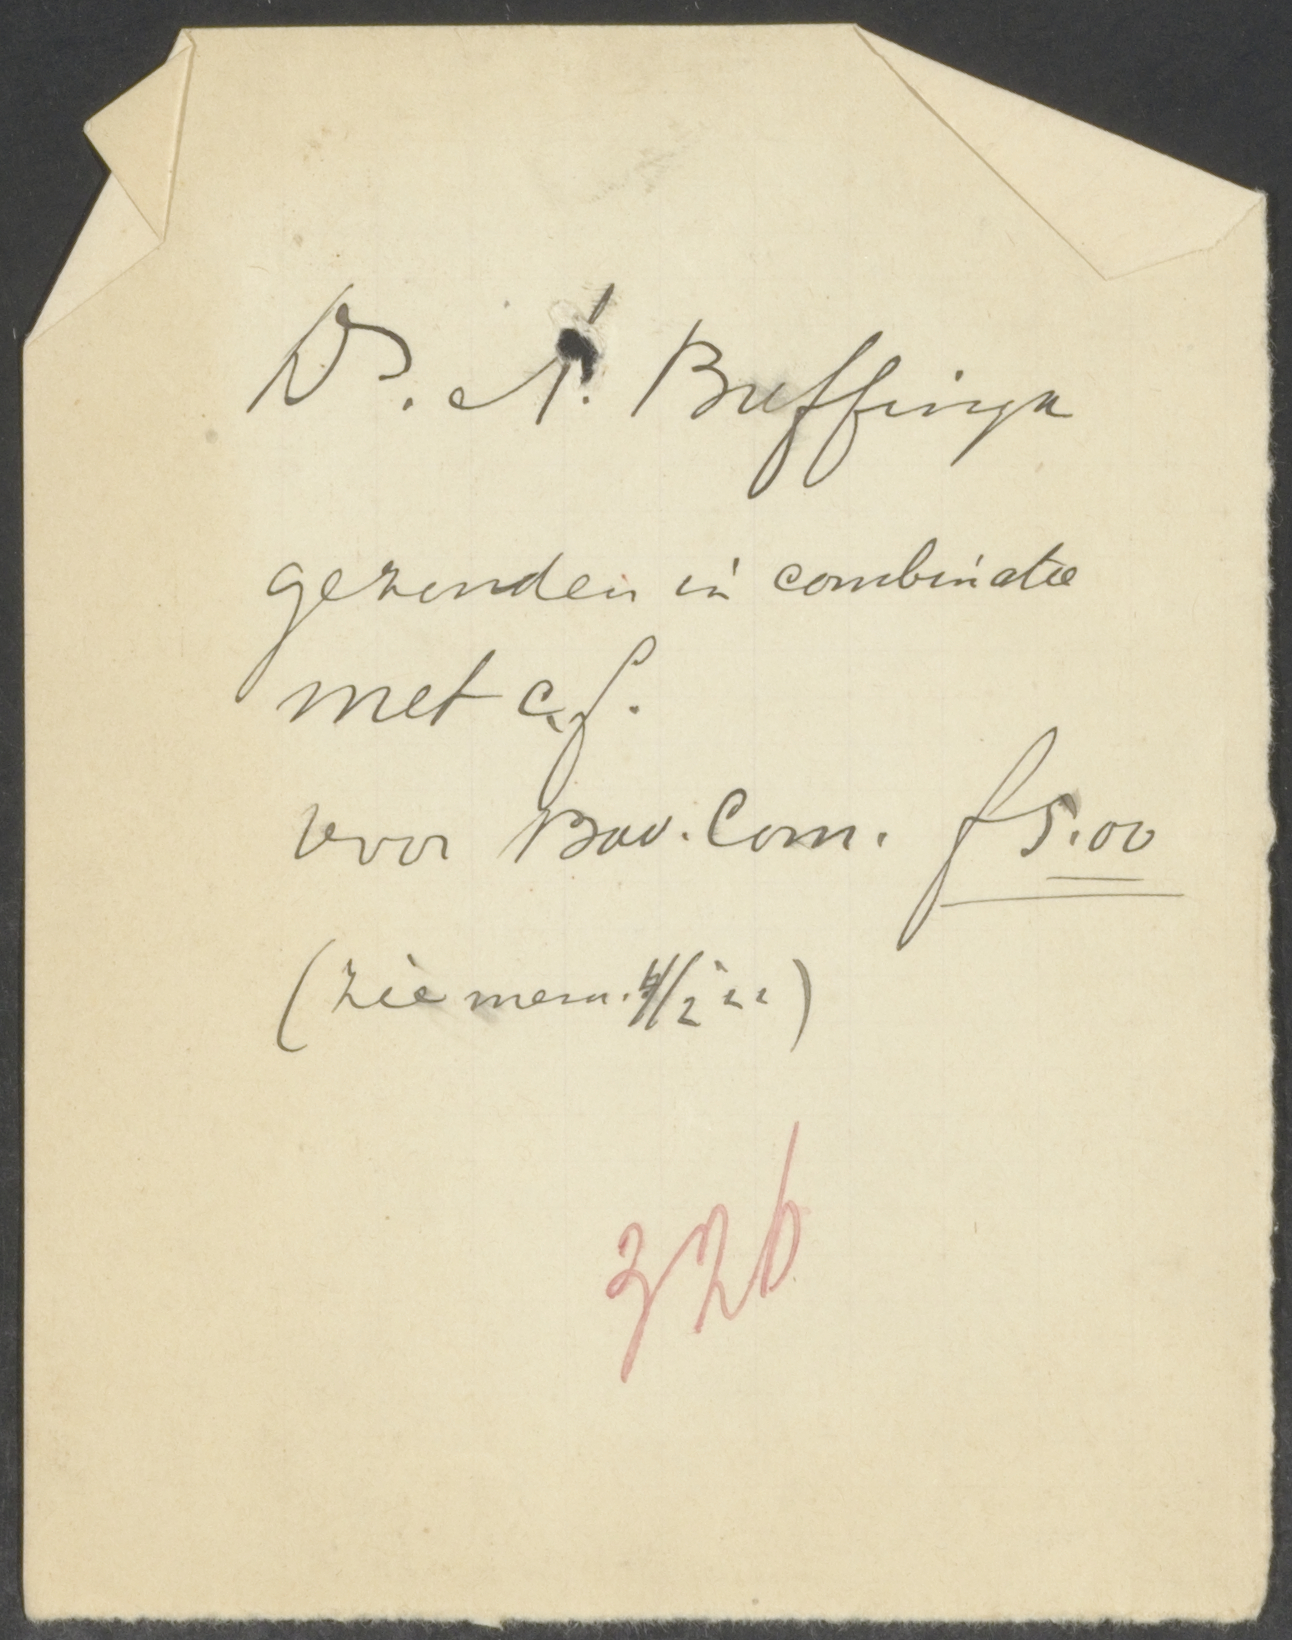 Ds. N. Buffinga
gezonden in combinatie
met c.f.
voor Bov. Com. f 5.00
(zie mem. 4/2 22)
326